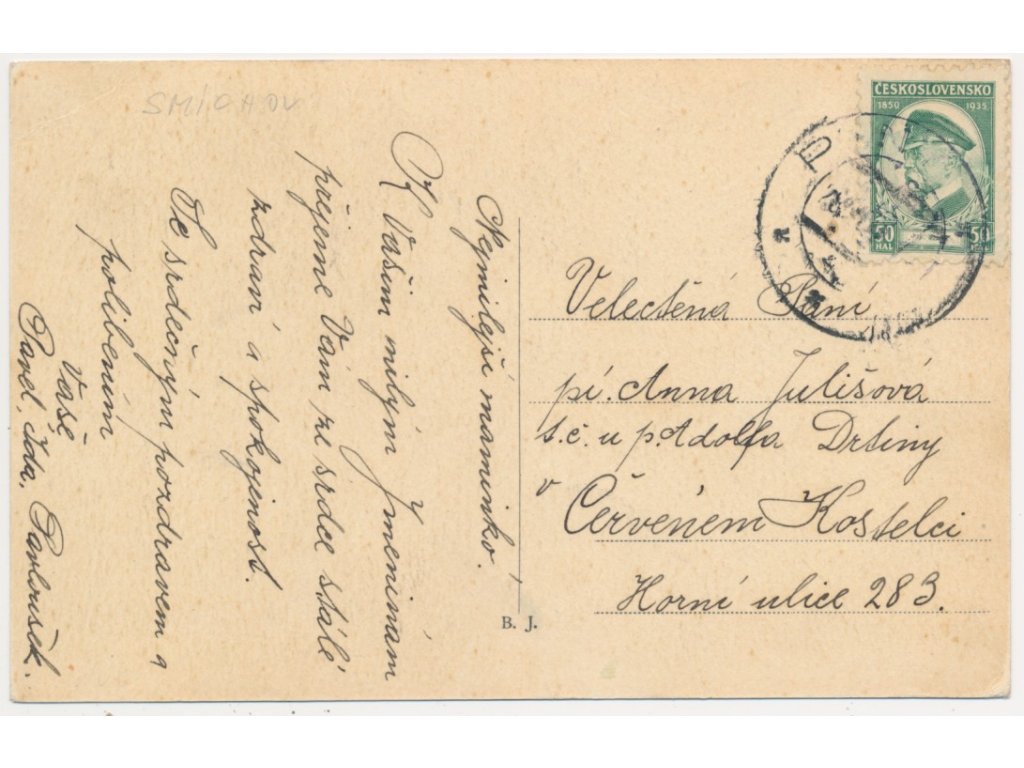 SMÍCHOV
Nejmilejší maminko!
K Vašim milým jmeninám
přejeme Vám ze srdce stálé
zdraví a spokojenost.
Se srdečným pozdravem a
políbením
Vaši
Pavel, Ida, Pavlušek.
ČESKOSLOVENSKO
1850 1935
50 50
HAL
Velectěná Paní
pí. Anna Julišová
t.č. u p. Adolfa Drtiny
v Červeném Kostelci
Horní ulice 283.
B. J.